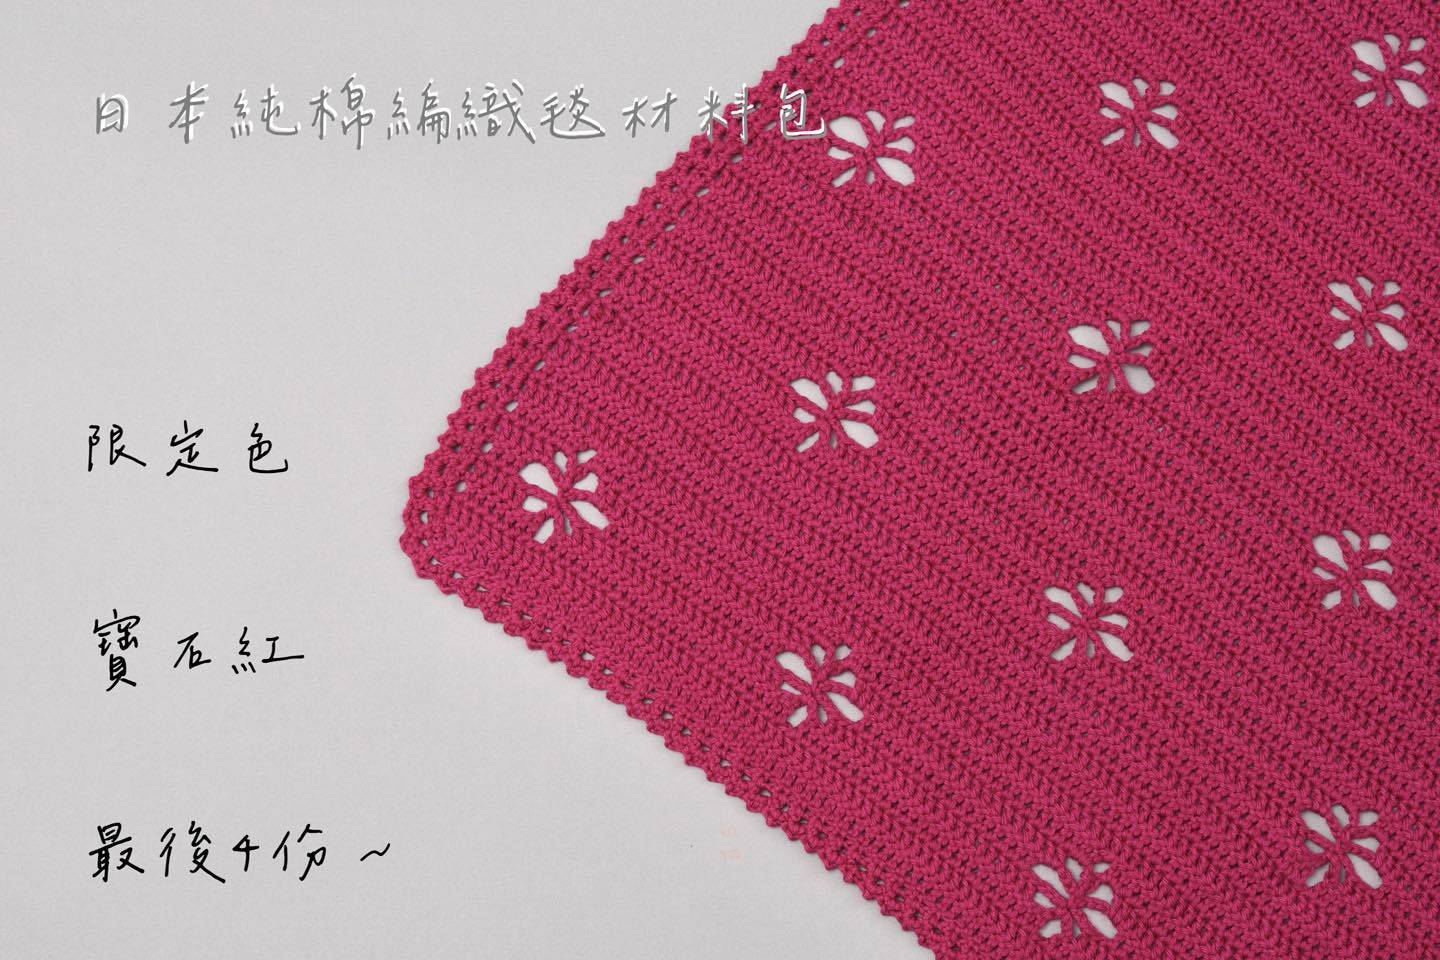 日本純棉編織毯材料包
限定色
寶石紅
最後4份~